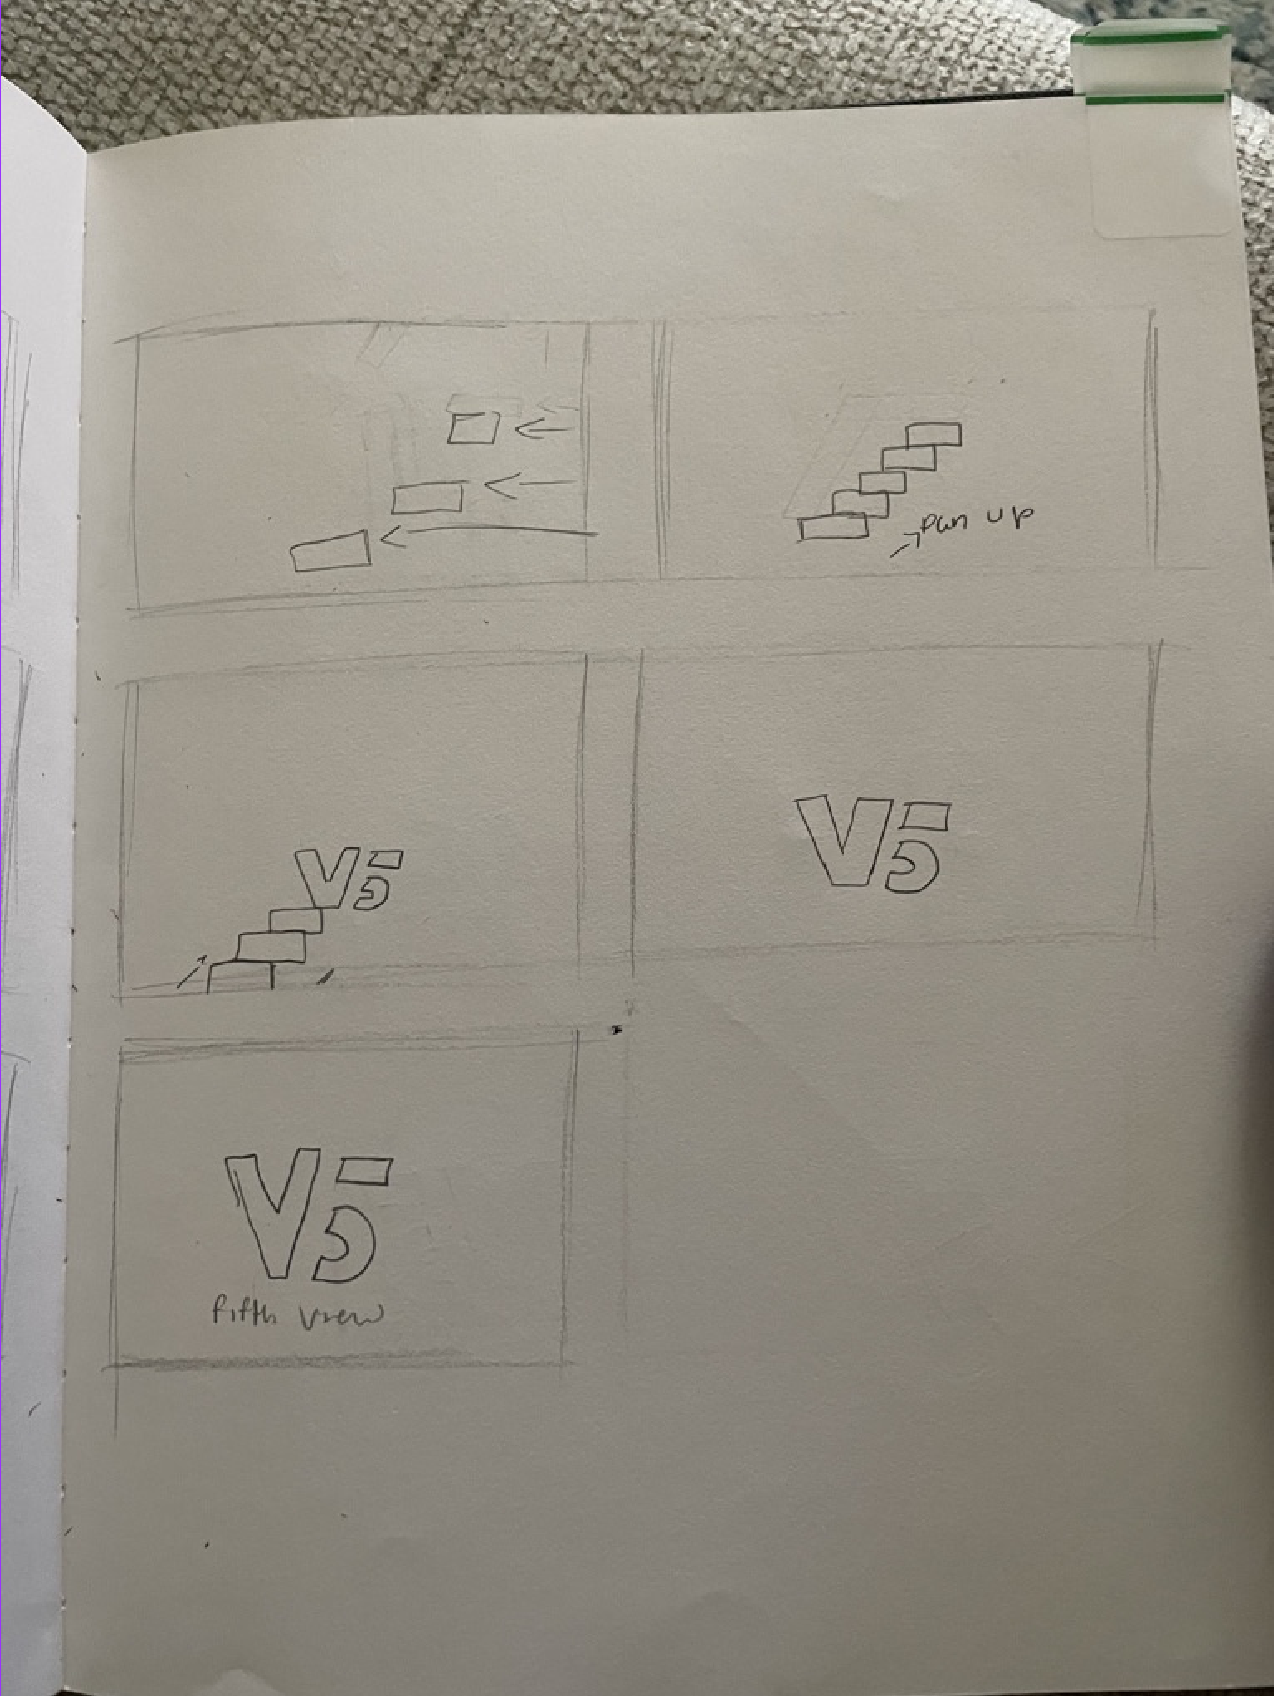 pan up
V5
V5
V5
fifth view